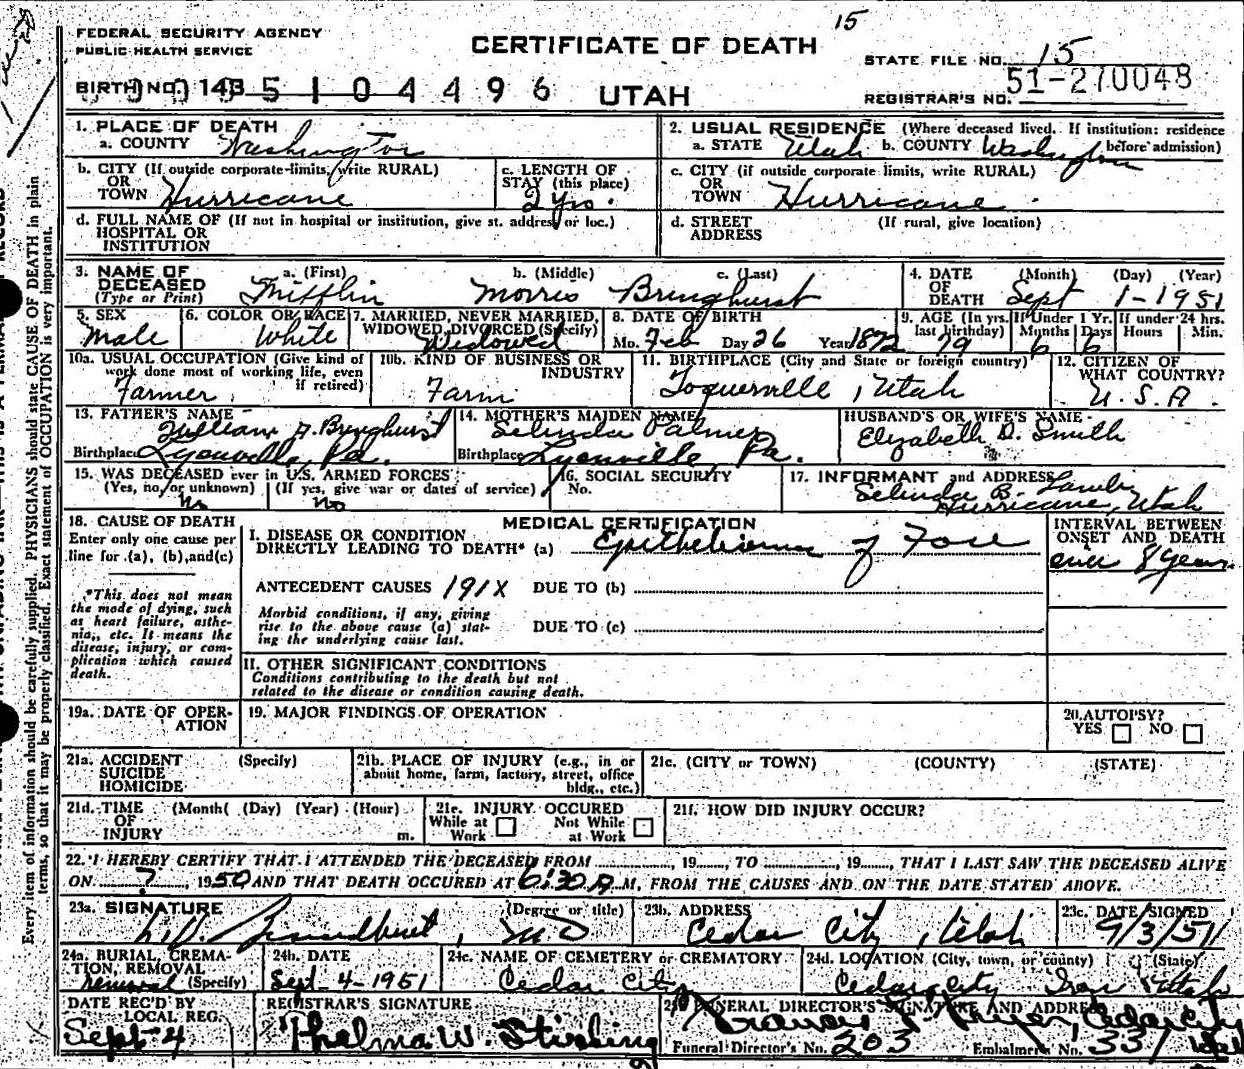 15
FEDERAL SECURITY AGENCY
PUBLIC HEALTH SERVICE
CERTIFICATE OF DEATH
STATE FILE NO. 15
BIRTH NO. 143
5 1 0 4 4 9 6
UTAH
51-270048
REGISTRAR'S NO.
1. PLACE OF DEATH
a. COUNTY Washington
2. USUAL RESIDENCE (Where deceased lived. If institution: residence before admission)
a. STATE Utah b. COUNTY Washington
b. CITY (If outside corporate limits, write RURAL) OR TOWN Hurricane
c. LENGTH OF STAY (this place) 2 yrs.
c. CITY (if outside corporate limits, write RURAL) OR TOWN Hurricane
d. FULL NAME OF (If not in hospital or institution, give st. address or loc.) HOSPITAL OR INSTITUTION
d. STREET ADDRESS (If rural, give location)
3. NAME OF DECEASED (Type or Print)
a. (First) Trifflin b. (Middle) Morris c. (Last) Bringhurst
4. DATE OF DEATH (Month) (Day) (Year) Sept 1-1951
5. SEX Male
6. COLOR OR RACE White
7. MARRIED, NEVER MARRIED, WIDOWED, DIVORCED (Specify) Widowed
8. DATE OF BIRTH Mo. Feb Day 26 Year 1872
9. AGE (In yrs. last birthday) 79 If Under 1 Yr. Months 6 Days 6 If under 24 hrs. Hours Min.
10a. USUAL OCCUPATION (Give kind of work done most of working life, even if retired) Farmer
10b. KIND OF BUSINESS OR INDUSTRY Farm
11. BIRTHPLACE (City and State or foreign country) Toquerville, Utah
12. CITIZEN OF WHAT COUNTRY? U.S.A.
13. FATHER'S NAME William A. Bringhurst
Birthplace Lyonville, Pa.
14. MOTHER'S MAIDEN NAME Selinda Palmer
Birthplace Lyonville Pa.
HUSBAND'S OR WIFE'S NAME Elizabeth D. Smith
15. WAS DECEASED ever in U.S. ARMED FORCES
(Yes, no, or unknown) No (If yes, give war or dates of service) No
16. SOCIAL SECURITY No.
17. INFORMANT and ADDRESS Selinda B. Lamb
Hurricane, Utah
18. CAUSE OF DEATH
Enter only one cause per line for (a), (b), and (c)
*This does not mean the mode of dying, such as heart failure, asthenia, etc. It means the disease, injury, or complication which caused death.
MEDICAL CERTIFICATION
I. DISEASE OR CONDITION DIRECTLY LEADING TO DEATH* (a) Epithelioma of Face
INTERVAL BETWEEN ONSET AND DEATH
over 8 years
ANTECEDENT CAUSES 191X DUE TO (b)
Morbid conditions, if any, giving rise to the above cause (a) stating the underlying cause last.
DUE TO (c)
II. OTHER SIGNIFICANT CONDITIONS
Conditions contributing to the death but not related to the disease or condition causing death.
19a. DATE OF OPERATION
19. MAJOR FINDINGS OF OPERATION
20. AUTOPSY?
YES NO
21a. ACCIDENT SUICIDE HOMICIDE (Specify)
21b. PLACE OF INJURY (e.g., in or about home, farm, factory, street, office bldg., etc.)
21c. (CITY or TOWN) (COUNTY) (STATE)
21d. TIME OF INJURY (Month( (Day) (Year) (Hour) m.
21e. INJURY OCCURED While at Work Not While at Work
21f. HOW DID INJURY OCCUR?
22. I HEREBY CERTIFY THAT I ATTENDED THE DECEASED FROM ........, 19......, TO ........, 19......, THAT I LAST SAW THE DECEASED ALIVE
ON ? , 1950 AND THAT DEATH OCCURED AT 6:30 A.M, FROM THE CAUSES AND ON THE DATE STATED ABOVE.
23a. SIGNATURE (Degree or title) MD
23b. ADDRESS Cedar City, Utah
23c. DATE SIGNED 9/3/51
24a. BURIAL, CREMATION, REMOVAL (Specify) Removal
24b. DATE Sept-4-1951
24c. NAME OF CEMETERY or CREMATORY Cedar City
24d. LOCATION (City, town, or county) (State) Cedar City Iron Utah
DATE REC'D BY LOCAL REG. Sept-4
REGISTRAR'S SIGNATURE Thelma W. Stirling
FUNERAL DIRECTOR'S SIGNATURE AND ADDRESS Cedar City
Funeral Director's No. 203 Embalmers No. 331
Every item of information should be carefully supplied. PHYSICIANS should state CAUSE OF DEATH in plain
terms, so that it may be properly classified. Exact statement of OCCUPATION is very important.